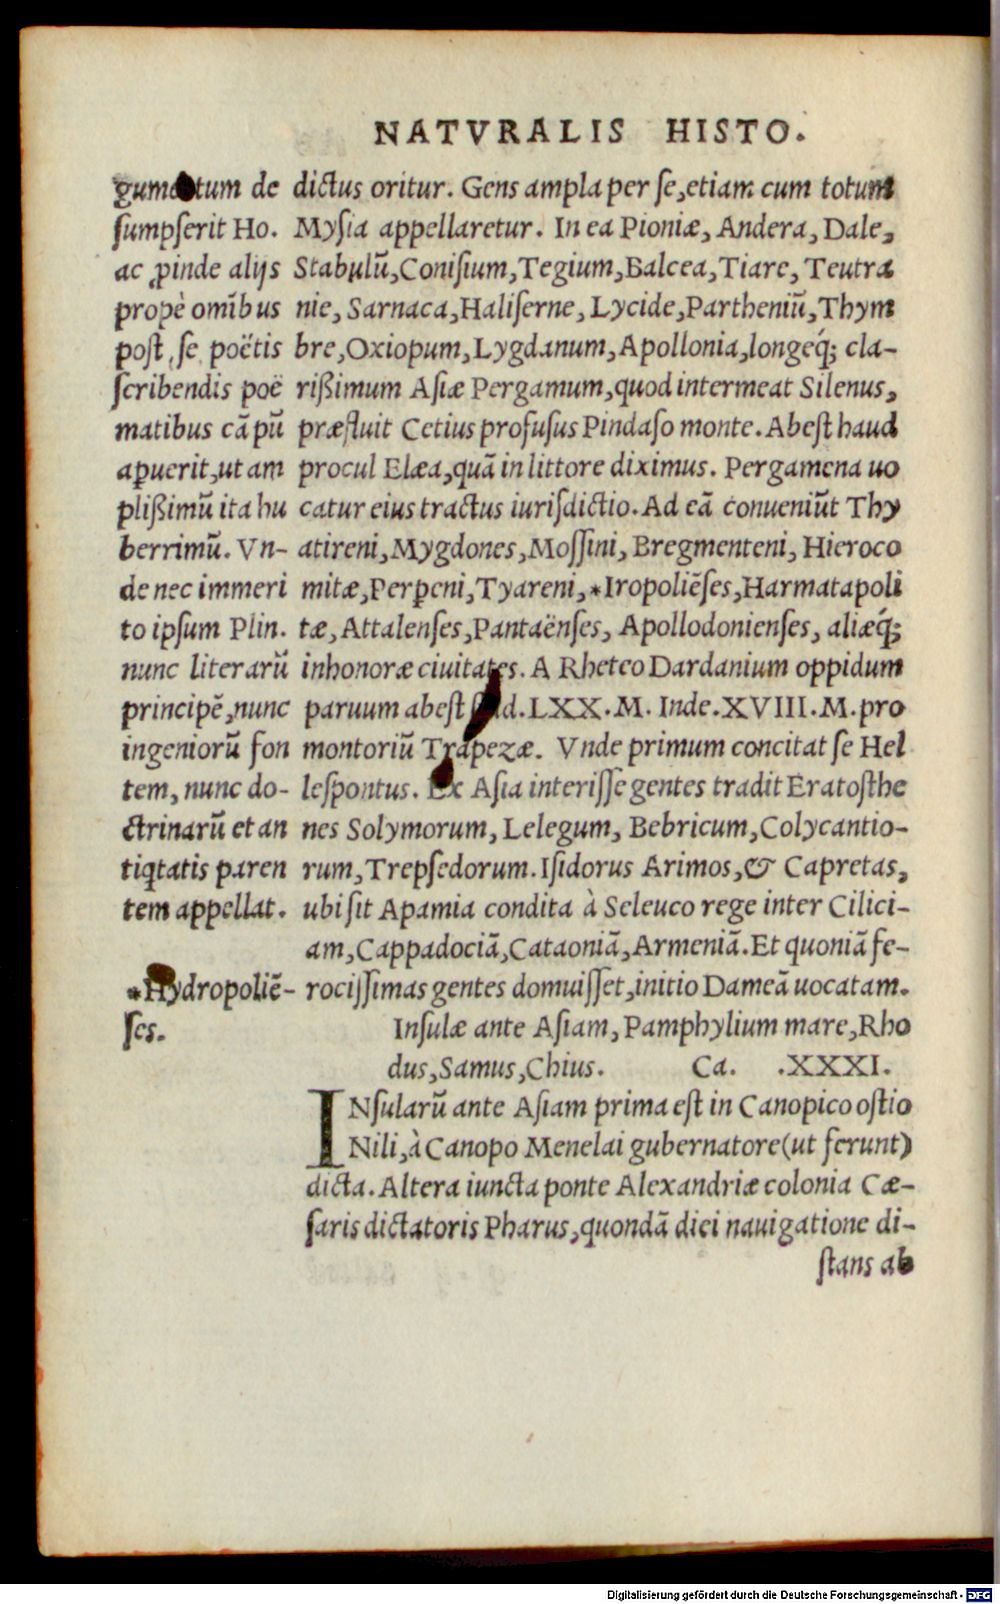 NATVRALIS HISTO.
gumentum de
sumpserit Ho.
ac ꝓinde alijs
propè omĩbus
post se poëtis
scribendis poë
matibus cã pũ
aꝑuerit, ut am
plißimũ ita hu
berrimũ. Vn-
de nec immeri
to ipsum Plin.
nunc literarũ
principẽ, nunc
ingeniorũ fon
tem, nunc do-
ctrinarũ et an
tiq̃tatis paren
tem appellat.
*Hydropoliẽ-
ses.
dictus oritur. Gens ampla per se, etiam cum totum
Mysia appellaretur. In ea Pioniæ, Andera, Dale,
Stabulũ, Conisium, Tegium, Balcea, Tiare, Teutra
nie, Sarnaca, Haliserne, Lycide, Partheniũ, Thym
bre, Oxiopum, Lygdanum, Apollonia, longeq́; cla-
rißimum Asiæ Pergamum, quod intermeat Silenus,
præfluit Cetius profusus Pindaso monte. Abest haud
procul Elæa, quã in littore diximus. Pergamena uo
catur eius tractus iurisdictio. Ad eã conueniũt Thy
atireni, Mygdones, Mossini, Bregmenteni, Hieroco
mitæ, Perꝑeni, Tyareni, *Iropoliẽses, Harmatapoli
tæ, Attalenses, Pantaënses, Apollodonienses, aliæq́;
inhonoræ ciuitates. A Rheteo Dardanium oppidum
paruum abest stad. LXX.M. Inde.XVIII.M.pro
montoriũ Trapezæ. Vnde primum concitat se Hel
lespontus. Ex Asia interisse gentes tradit Eratosthe
nes Solymorum, Lelegum, Bebricum, Colycantio-
rum, Trepsedorum. Isidorus Arimos, & Capretas,
ubi sit Apamia condita à Seleuco rege inter Cilici-
am, Cappadociã, Cataoniã, Armeniã. Et quoniã fe-
rocissimas gentes domuisset, initio Dameã uocatam.
Insulæ ante Asiam, Pamphylium mare, Rho
dus, Samus, Chius. Ca. .XXXI.
INsularũ ante Asiam prima est in Canopico ostio
Nili, à Canopo Menelai gubernatore (ut ferunt)
dicta. Altera iuncta ponte Alexandriæ colonia Cæ-
saris dictatoris Pharus, quondã diei nauigatione di-
stans ab
Digitalisierung gefördert durch die Deutsche Forschungsgemeinschaft - DFG